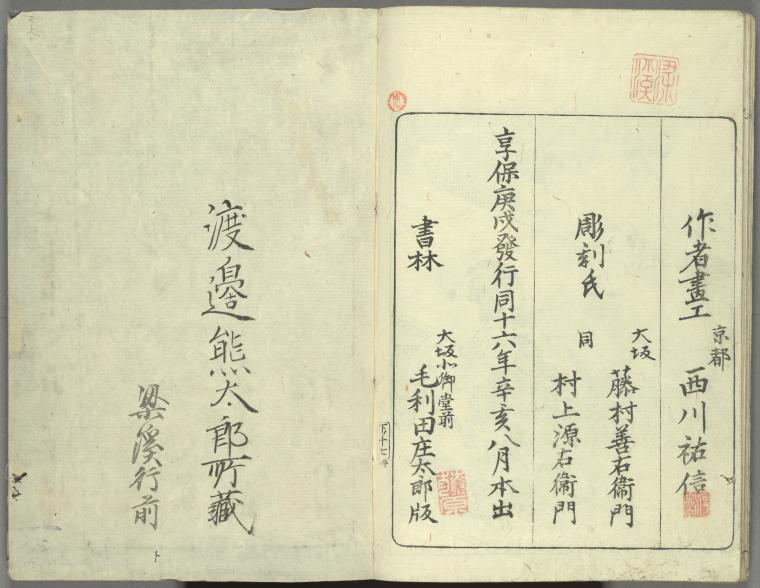 作者畫工
京都
西川祐信
大坂
藤村善右衞門
彫刻氏
同
村上源右衞門
享保庚戌發行同十六年辛亥八月本出
書林
大坂北御堂前
毛利田庄太郎版
下ノ十七
渡邊熊太郎所藏
梁溪行前